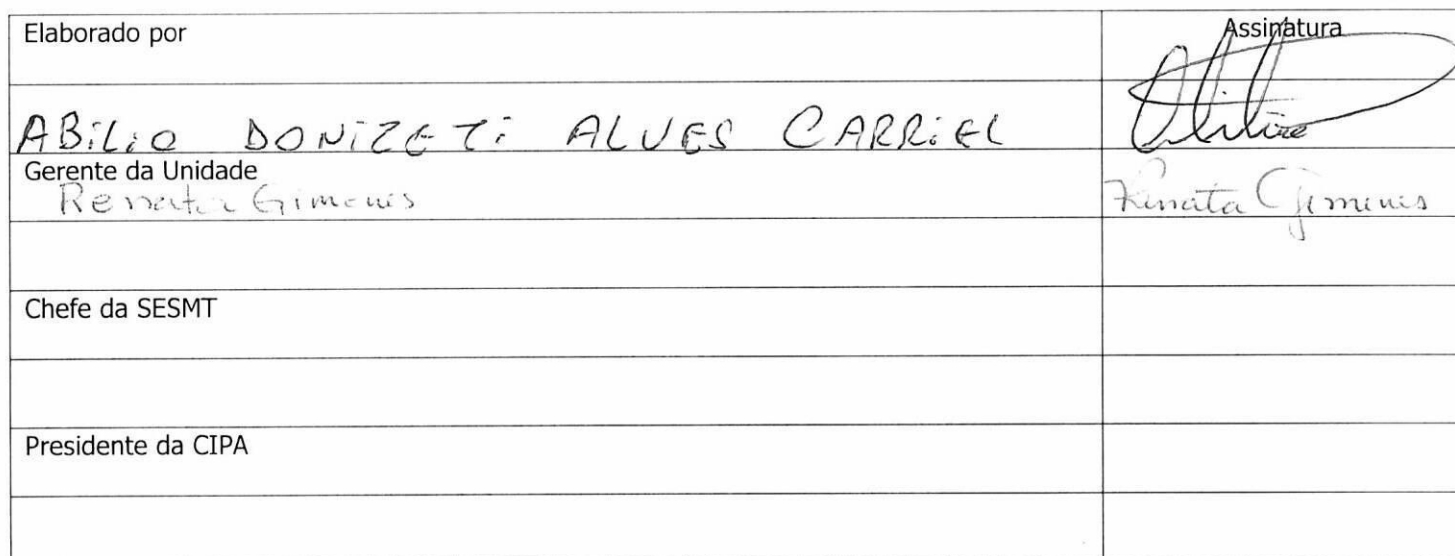 Elaborado por Assinatura
ABiLiO DONiZETi ALVES CARRiEL
Gerente da Unidade
Renata Gimenis Renata Gimenis
Chefe da SESMT
Presidente da CIPA